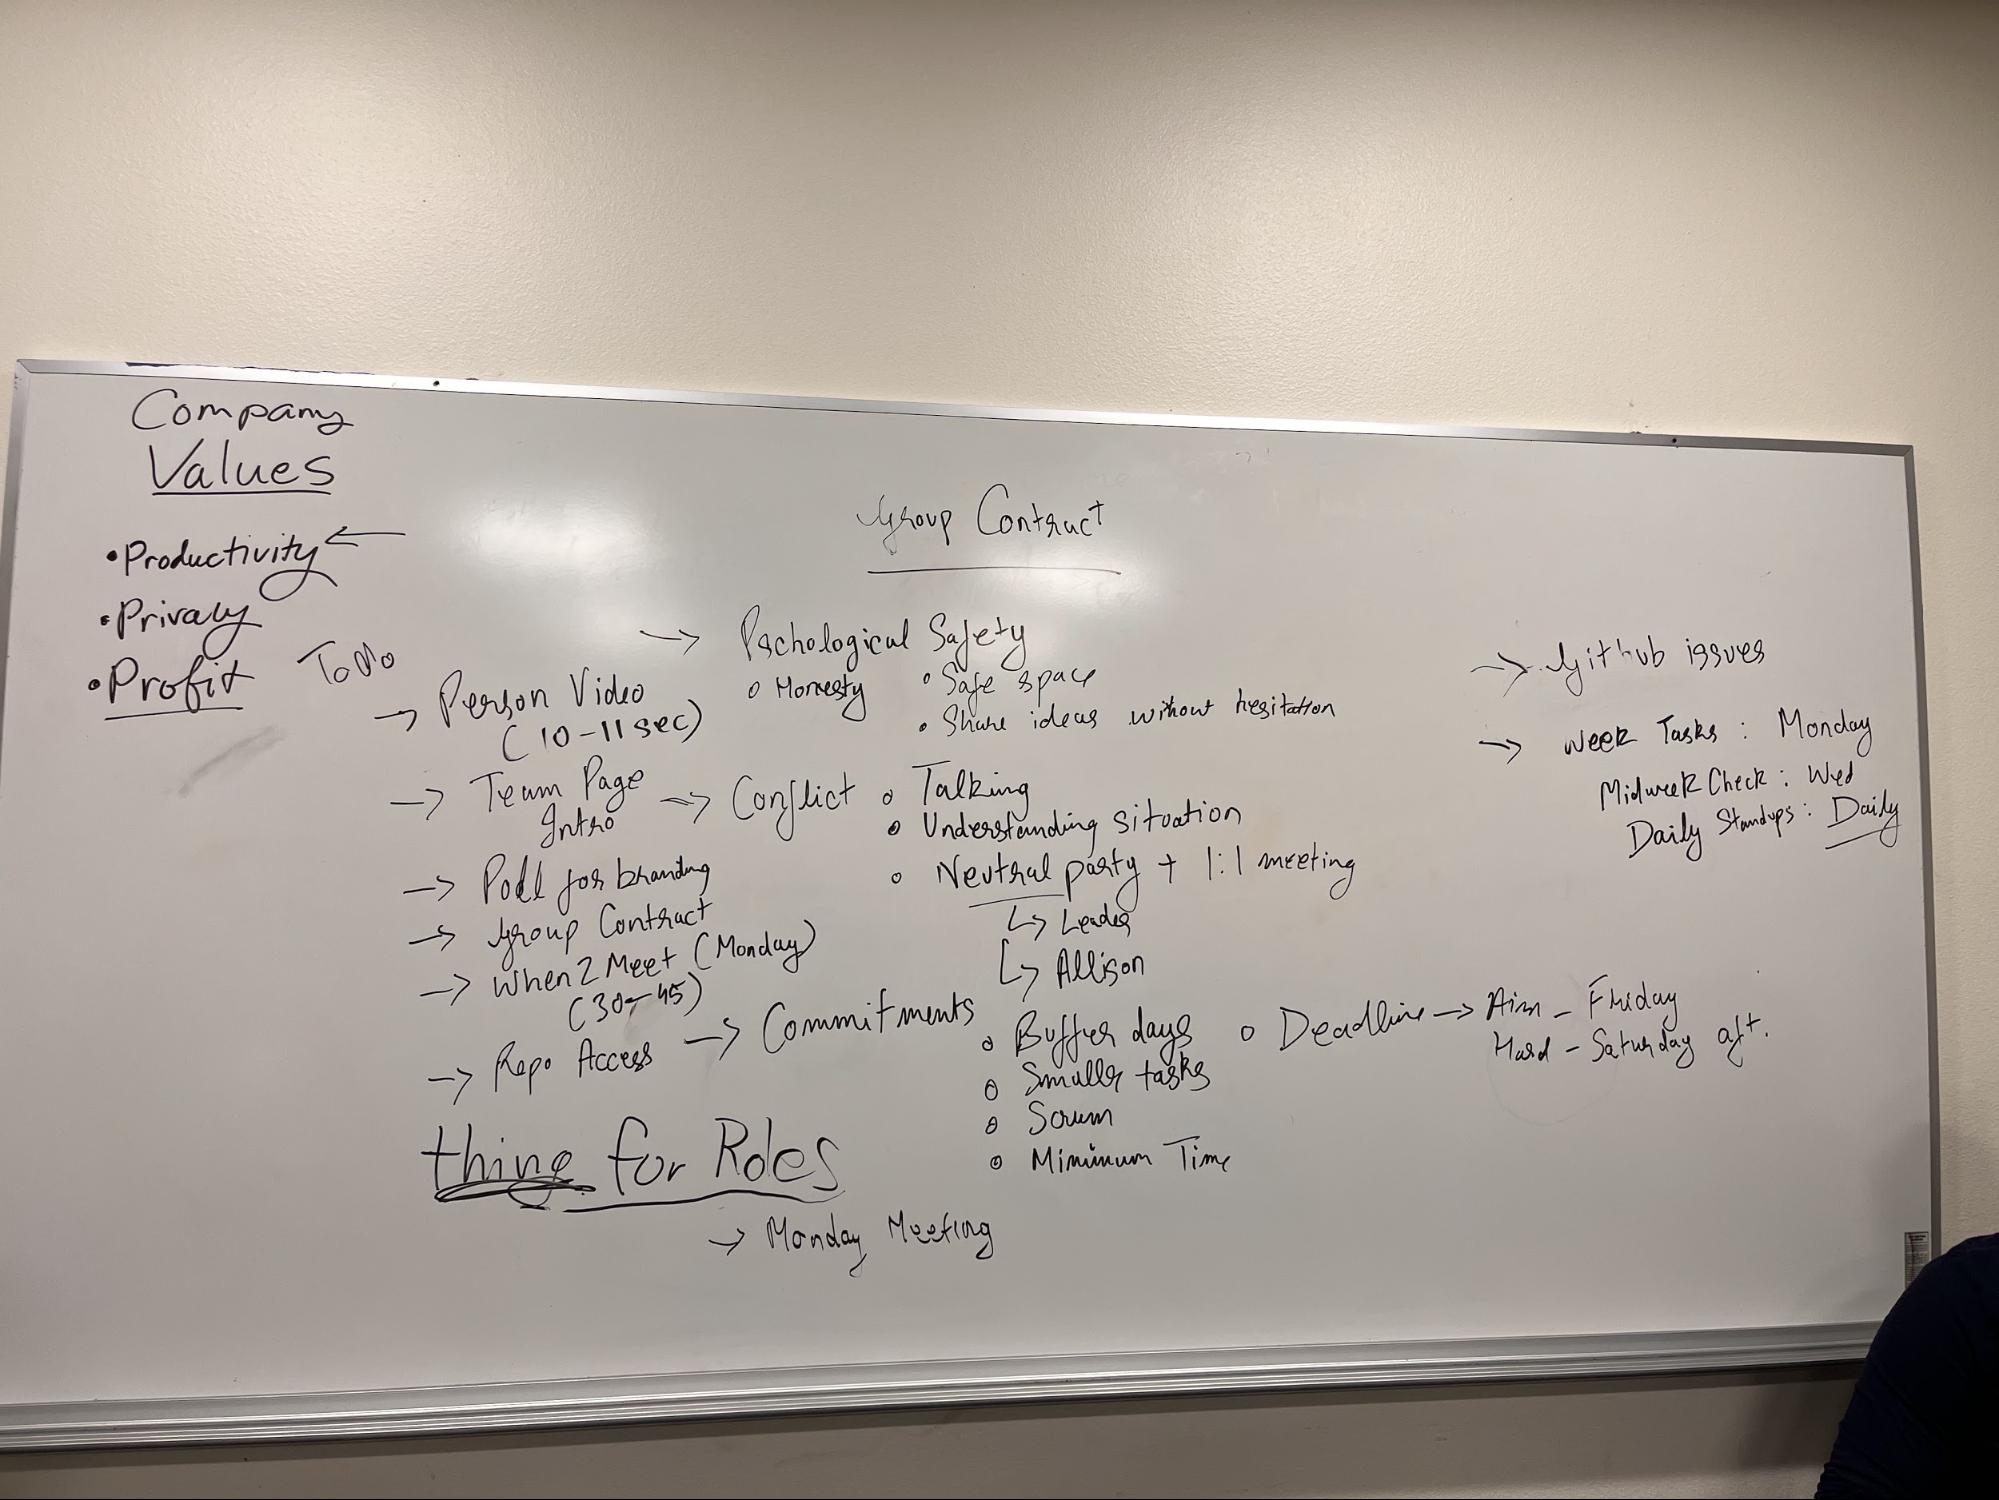 Company
Values
• Productivity ←
• Privacy
• Profit
ToDo
→ Person Video
(10-11 sec)
→ Team Page
Intro
→ Poll for branding
→ Group Contract
→ When2Meet (Monday)
(30-45)
→ Repo Access
thing for Roles
→ Monday Meeting
Group Contract
→ Pschological Safety
o Honesty
• Safe space
• Share ideas without hesitation
→ Conflict o Talking
o Understanding situation
o Neutral party + 1:1 meeting
↳ Leader
↳ Allison
→ Commitments
o Buffer days
o Smaller tasks
o Scrum
o Minimum Time
o Deadline → Aim - Friday
Hard - Saturday aft.
→ Github issues
→ Week Tasks : Monday
Midweek Check : Wed
Daily Standups : Daily